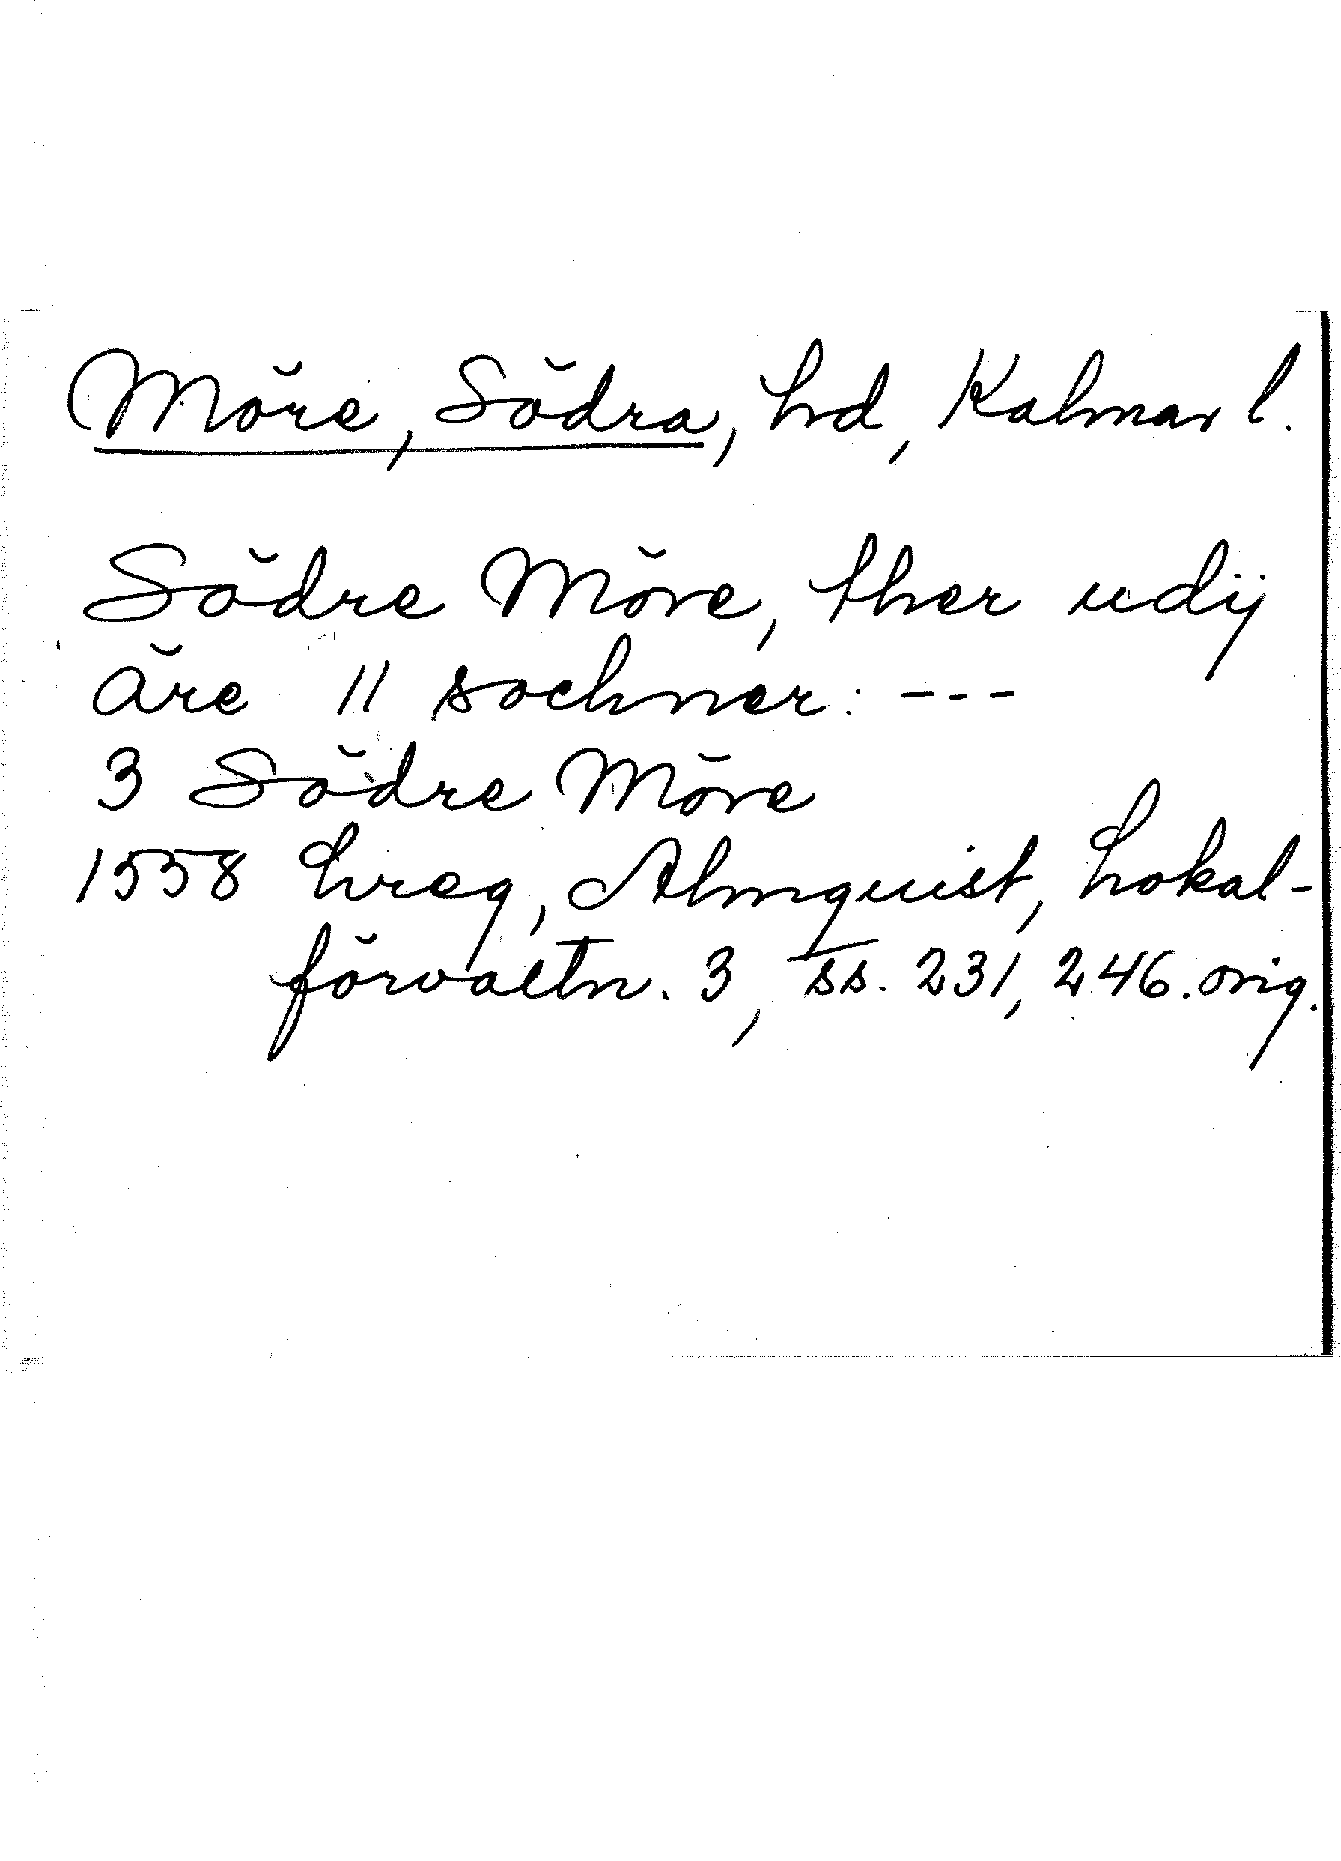 Möre, Södra, hd, Kalmar l.
Södre Möre, ther udij
äre 11 sochner: ---
3 Södre Möre
1558 Lreg, Almquist, Lokal-
förvaltn. 3, ss. 231, 246. orig.